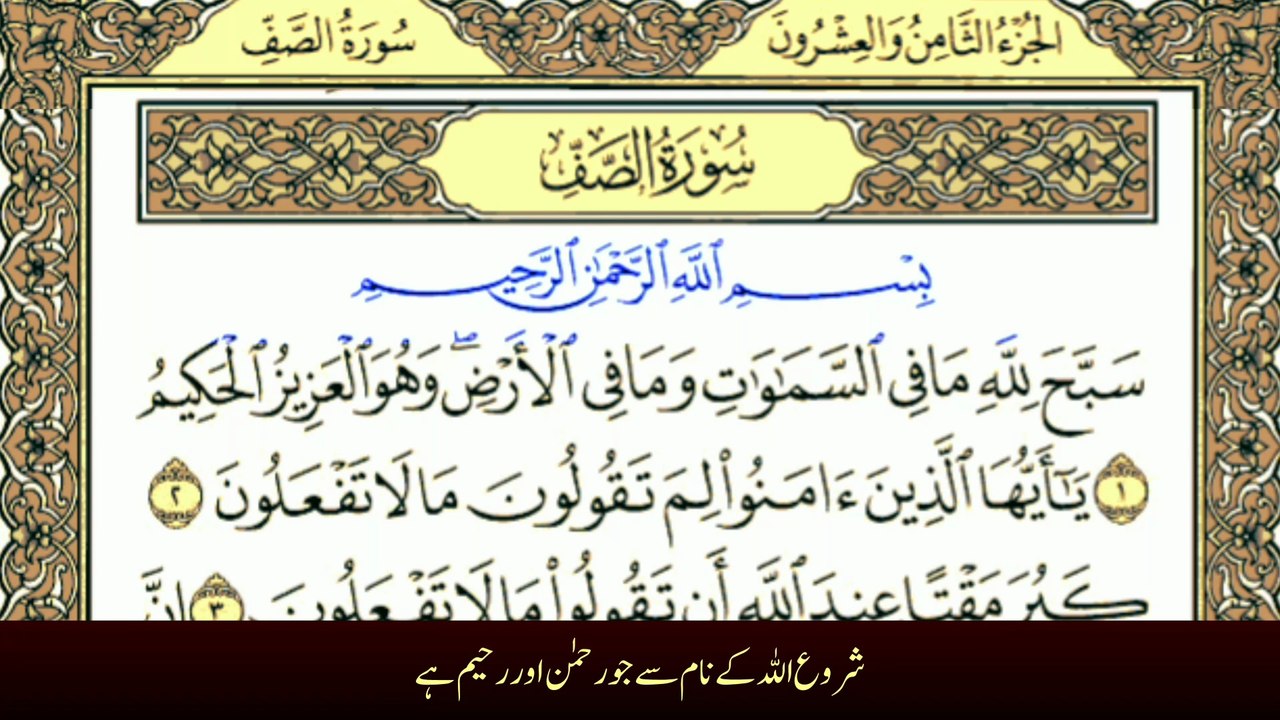 الجُزْءُ الثَّامِنُ وَالعِشْرُونَ
سُورَةُ الصَّفِّ
سُورَةُ الصَّفِّ
بِسْمِ ٱللَّهِ ٱلرَّحْمَٰنِ ٱلرَّحِيمِ
سَبَّحَ لِلَّهِ مَا فِي ٱلسَّمَٰوَٰتِ وَمَا فِي ٱلْأَرْضِۖ وَهُوَ ٱلْعَزِيزُ ٱلْحَكِيمُ
١ يَٰٓأَيُّهَا ٱلَّذِينَ ءَامَنُوا۟ لِمَ تَقُولُونَ مَا لَا تَفْعَلُونَ ٢
كَبُرَ مَقْتًا عِندَ ٱللَّهِ أَن تَقُولُوا۟ مَا لَا تَفْعَلُونَ ٣ إِنَّ
شروع اللہ کے نام سے جو رحمٰن اور رحیم ہے